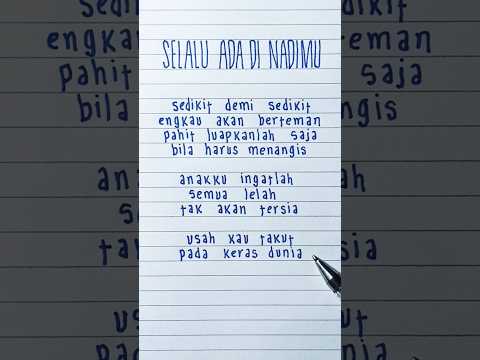 SELALU ADA DI NADIMU
sedikit demi sedikit
engkau akan berteman
pahit luapkanlah saja
bila harus menangis
anakku ingatlah
semua lelah
tak akan tersia
usah kau takut
pada keras dunia